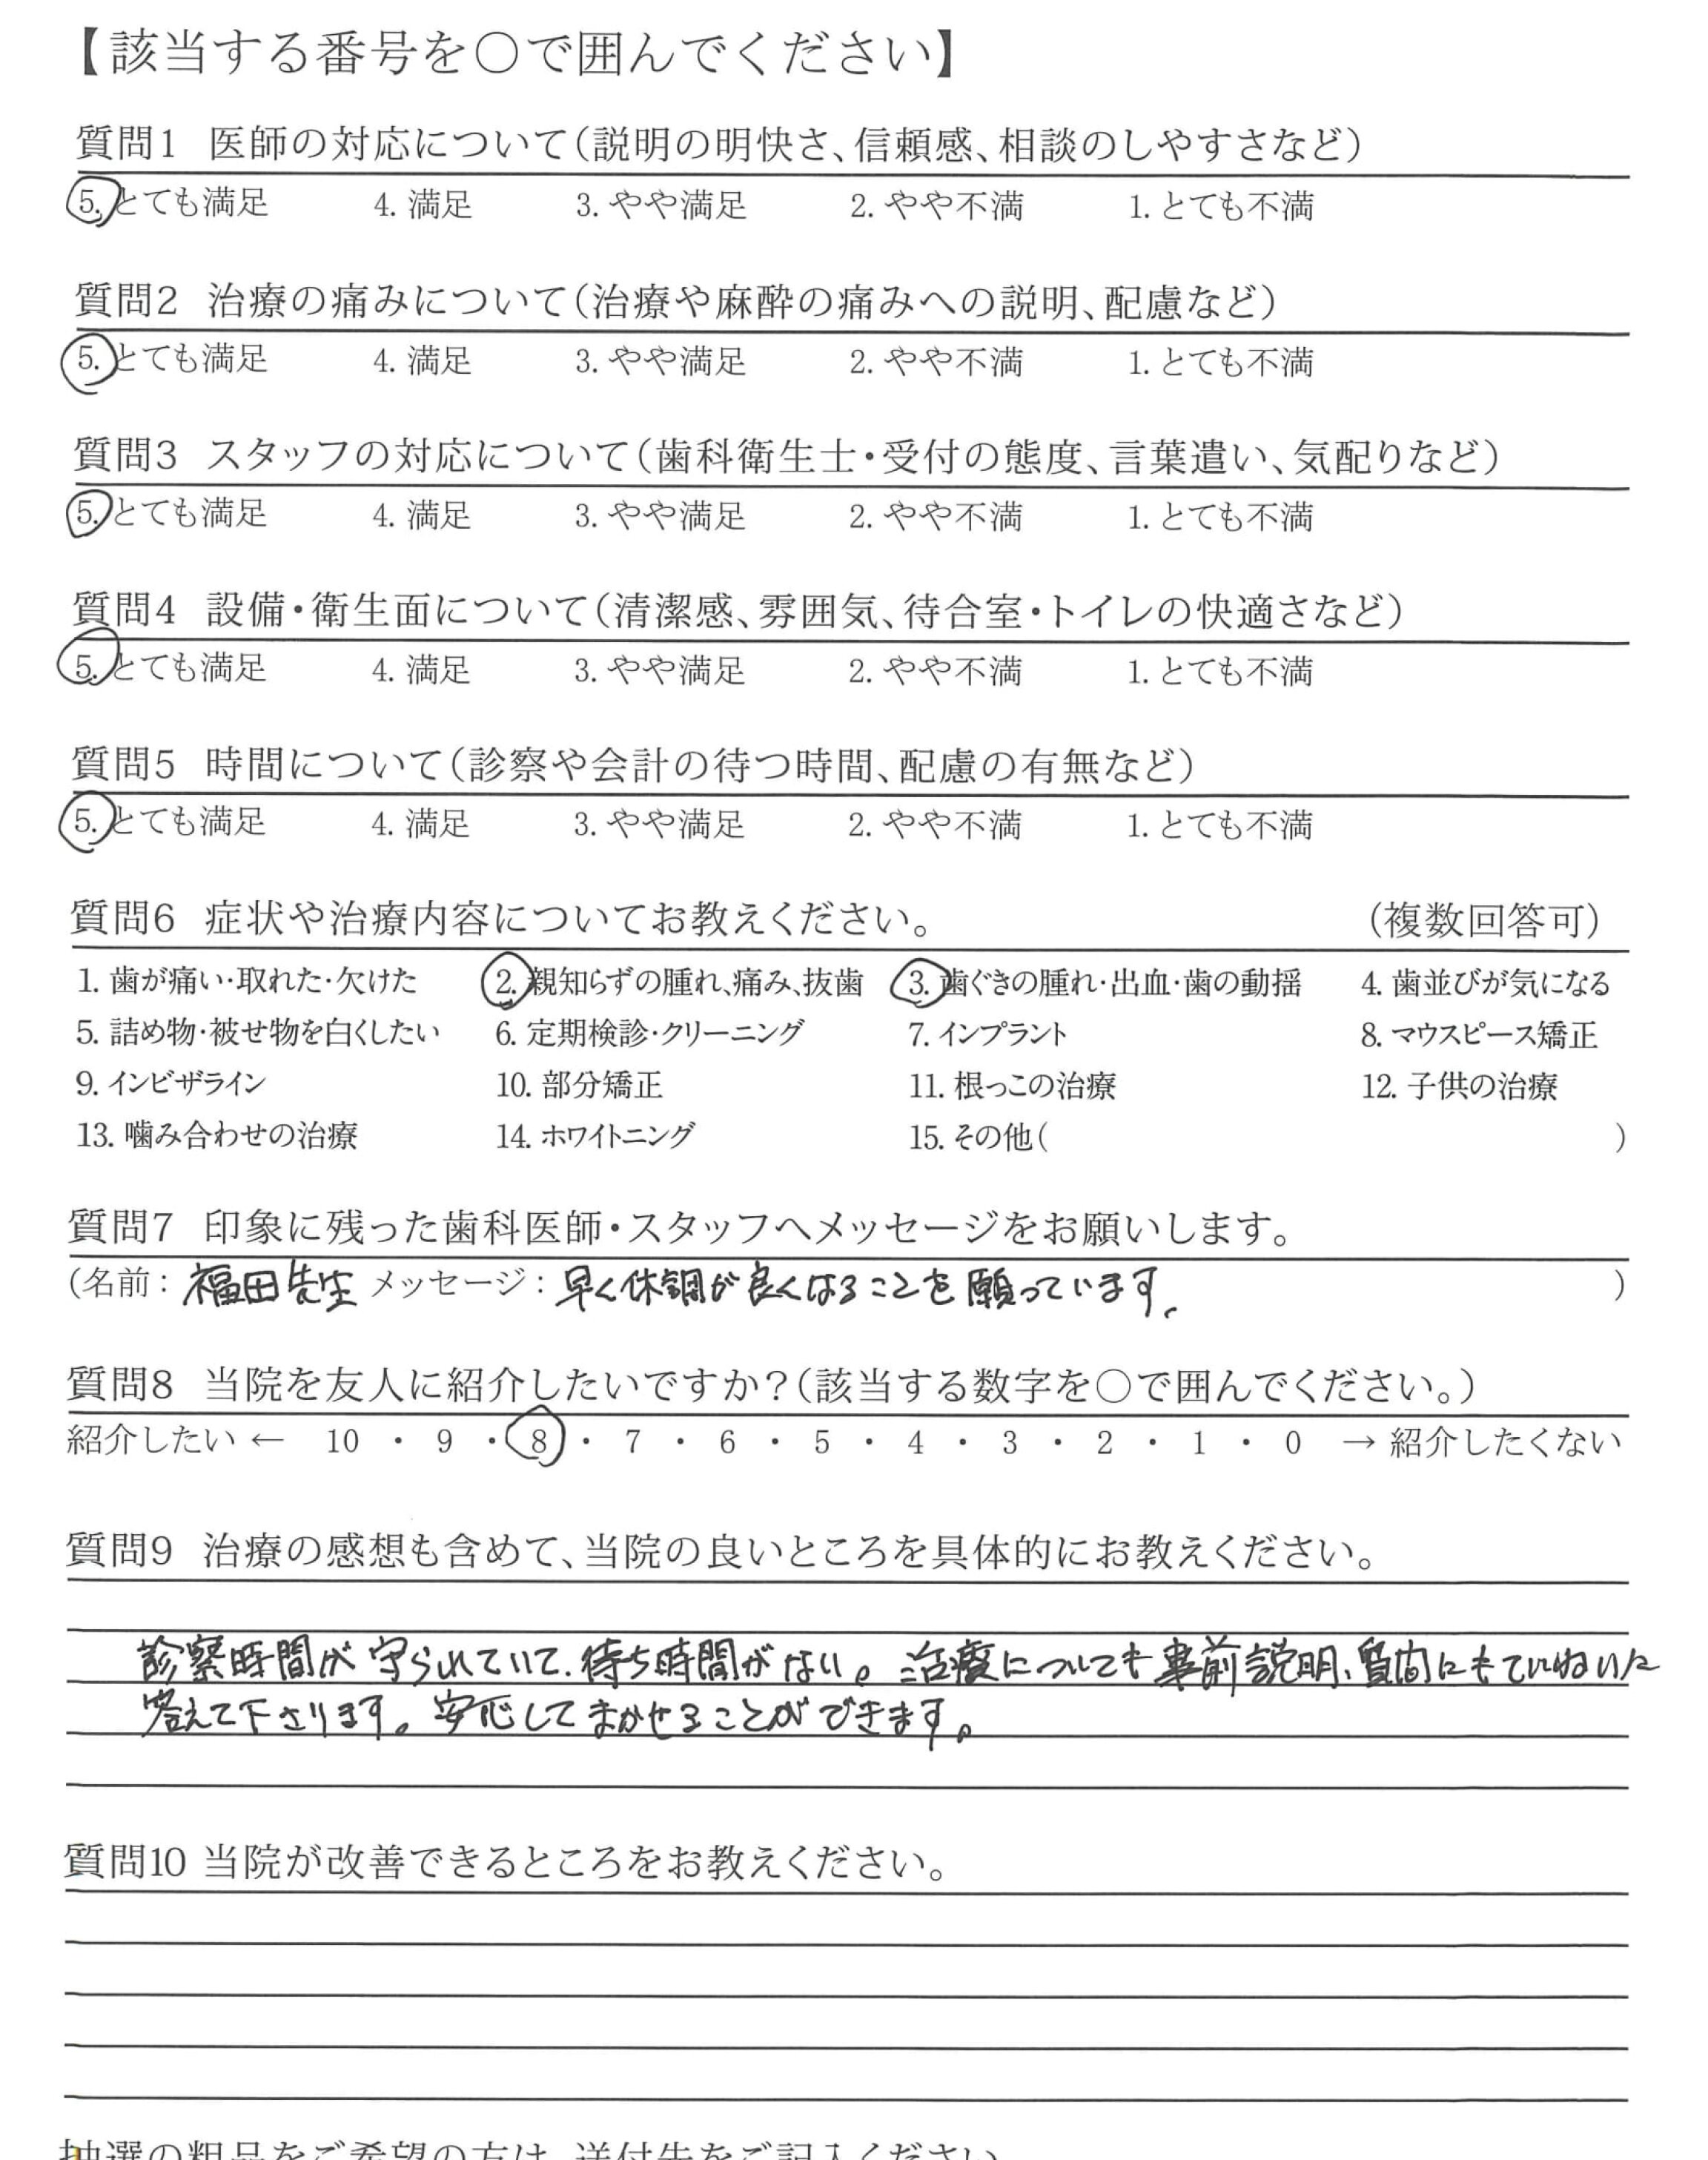 【該当する番号を○で囲んでください】
質問1 医師の対応について(説明の明快さ、信頼感、相談のしやすさなど)
5. とても満足 4. 満足 3. やや満足 2. やや不満 1. とても不満
質問2 治療の痛みについて(治療や麻酔の痛みへの説明、配慮など)
5. とても満足 4. 満足 3. やや満足 2. やや不満 1. とても不満
質問3 スタッフの対応について(歯科衛生士・受付の態度、言葉遣い、気配りなど)
5. とても満足 4. 満足 3. やや満足 2. やや不満 1. とても不満
質問4 設備・衛生面について(清潔感、雰囲気、待合室・トイレの快適さなど)
5. とても満足 4. 満足 3. やや満足 2. やや不満 1. とても不満
質問5 時間について(診察や会計の待つ時間、配慮の有無など)
5. とても満足 4. 満足 3. やや満足 2. やや不満 1. とても不満
質問6 症状や治療内容についてお教えください。 (複数回答可)
1. 歯が痛い・取れた・欠けた 2. 親知らずの腫れ、痛み、抜歯 3. 歯ぐきの腫れ・出血・歯の動揺 4. 歯並びが気になる
5. 詰め物・被せ物を白くしたい 6. 定期検診・クリーニング 7. インプラント 8. マウスピース矯正
9. インビザライン 10. 部分矯正 11. 根っこの治療 12. 子供の治療
13. 噛み合わせの治療 14. ホワイトニング 15. その他( )
質問7 印象に残った歯科医師・スタッフへメッセージをお願いします。
(名前: 福田先生 メッセージ: 早く体調が良くなることを願っています。 )
質問8 当院を友人に紹介したいですか?(該当する数字を○で囲んでください。)
紹介したい ← 10 ・ 9 ・ 8 ・ 7 ・ 6 ・ 5 ・ 4 ・ 3 ・ 2 ・ 1 ・ 0 → 紹介したくない
質問9 治療の感想も含めて、当院の良いところを具体的にお教えください。
診察時間が守られていて、待ち時間がない。治療についても事前説明、質問にもていねいに
答えて下さります。安心してまかせることができます。
質問10 当院が改善できるところをお教えください。
抽選の粗品をご希望の方は、送付先をご記入ください